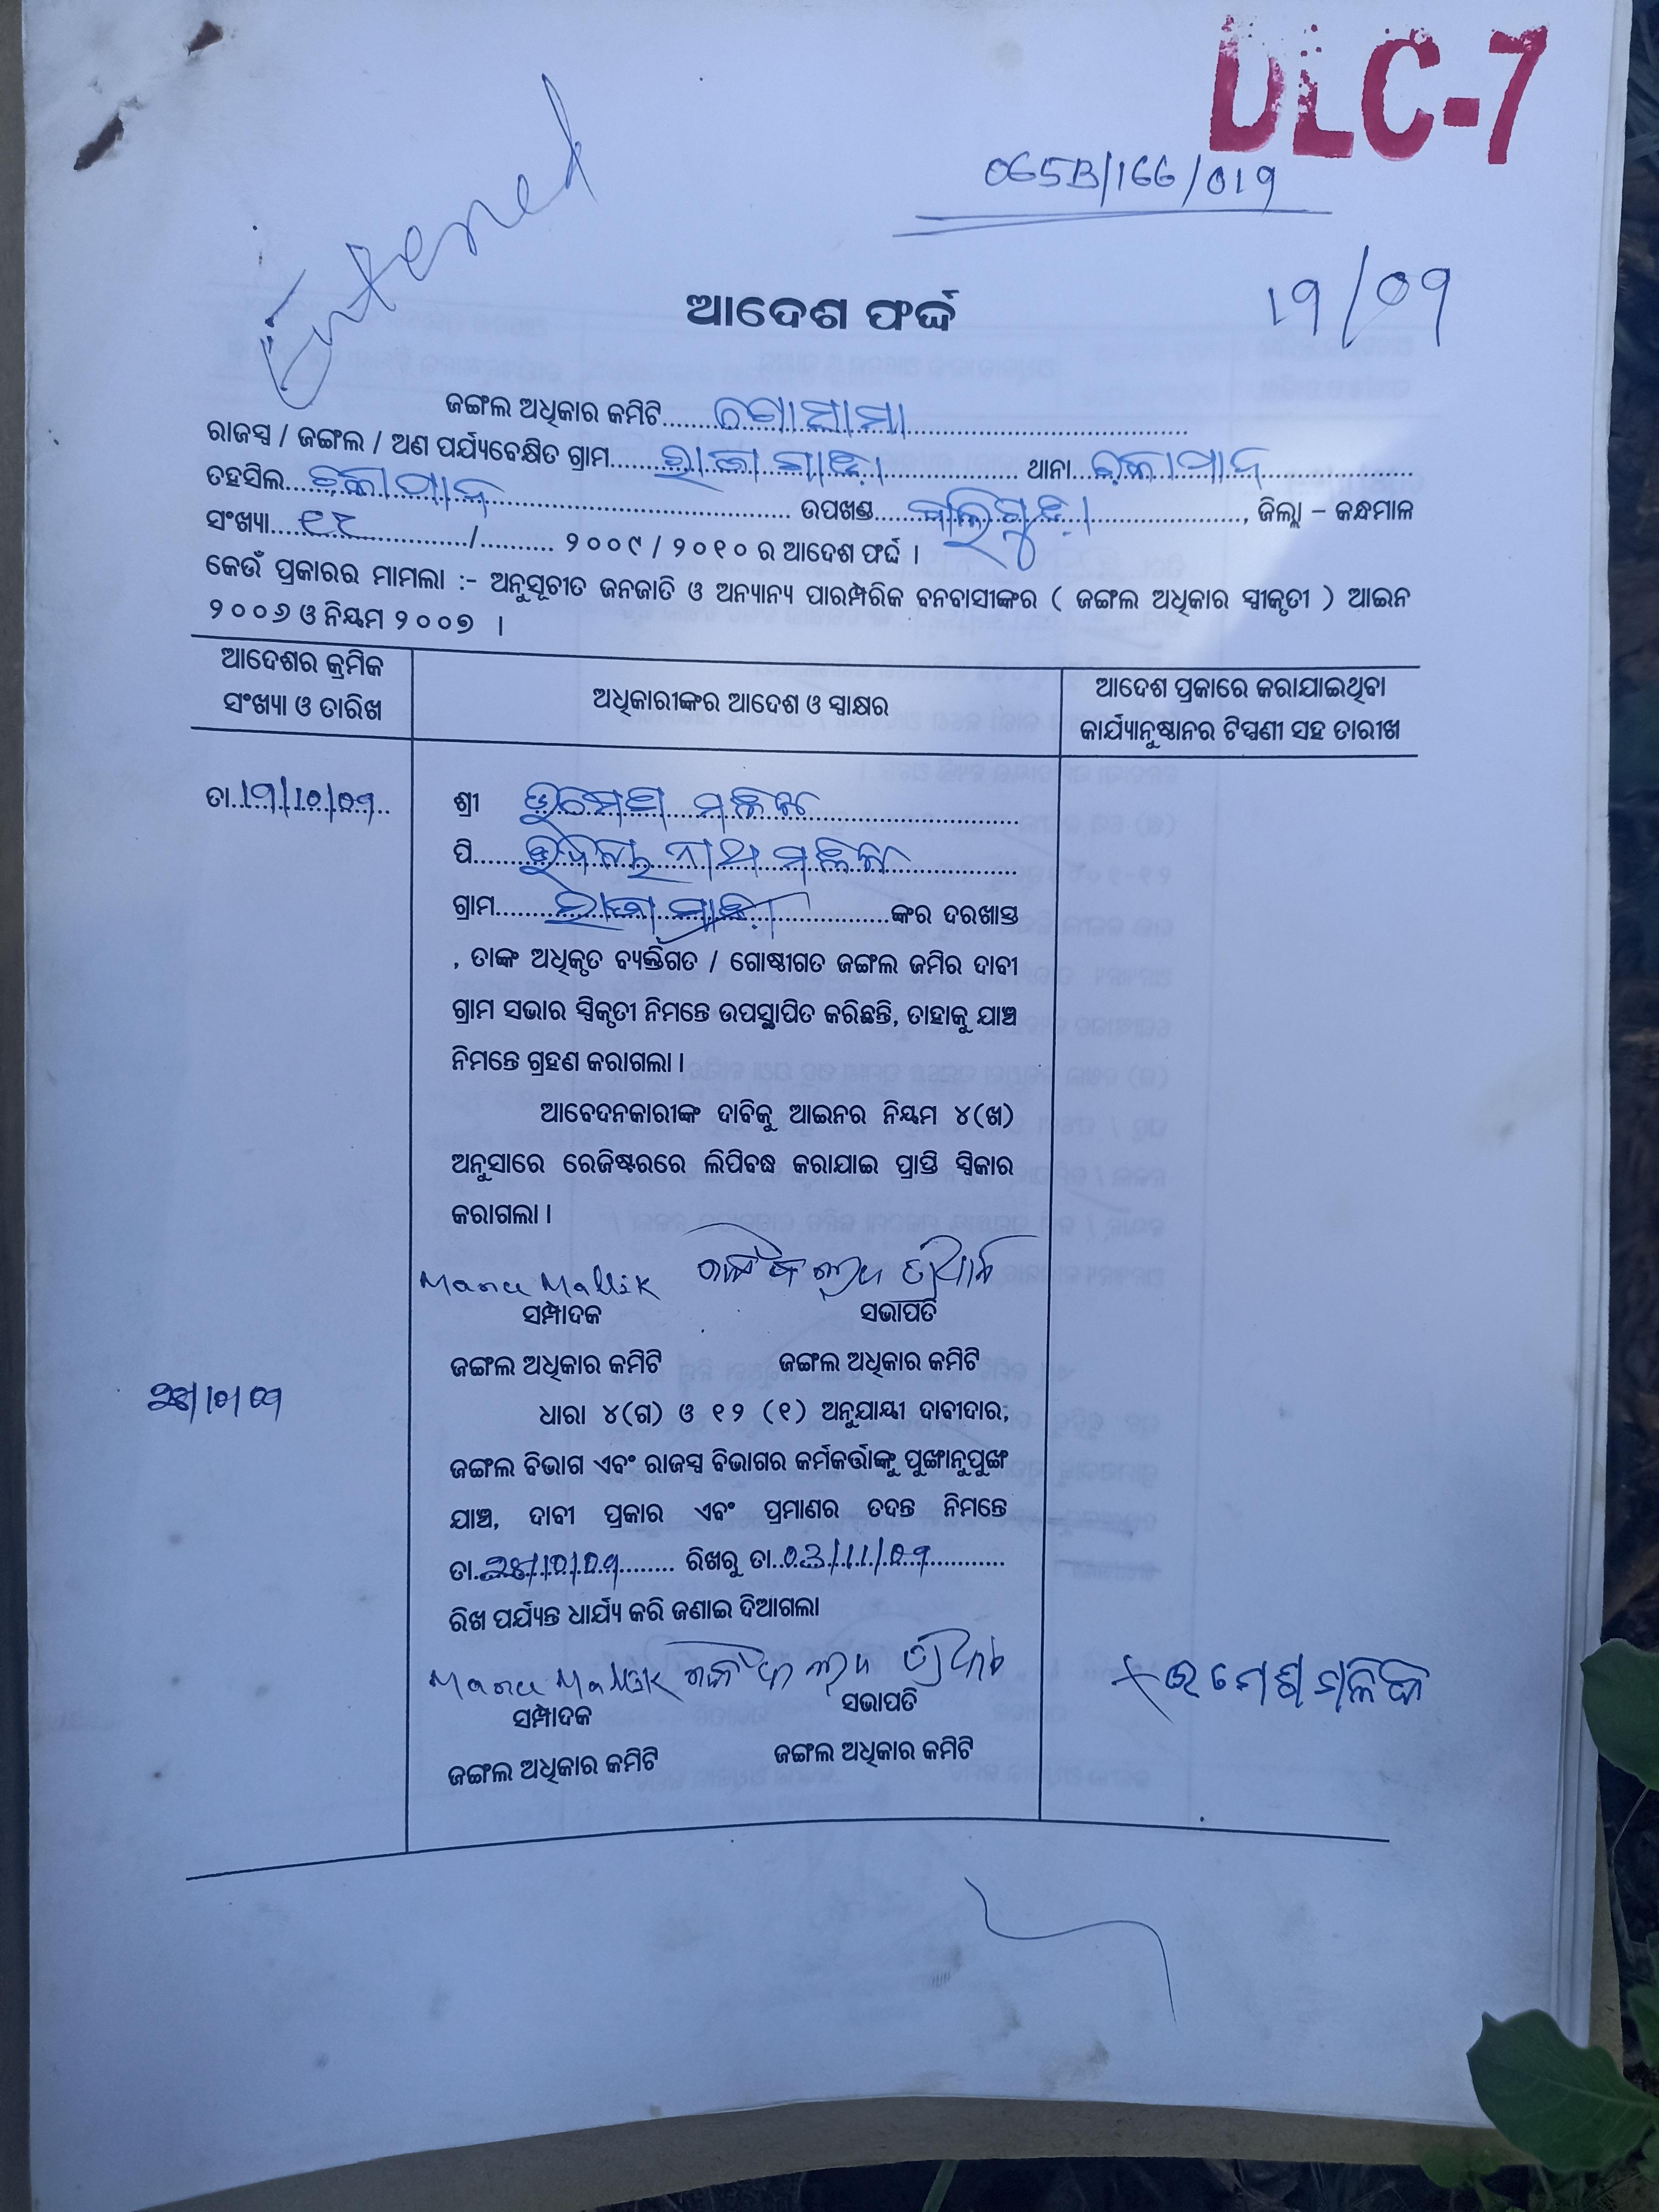 DLC-7
Entered
065B/166/019
19/09
ଆଦେଶ ଫର୍ଦ୍ଦ
ଜଙ୍ଗଲ ଅଧିକାର କମିଟି
ରାଜସ୍ୱ / ଜଙ୍ଗଲ / ଅଣ ପର୍ଯ୍ୟବେକ୍ଷିତ ଗ୍ରାମ ଥାନା
ତହସିଲ ଉପଖଣ୍ଡ ବାଲିଗୁଡ଼ା, ଜିଲ୍ଲା – କନ୍ଧମାଳ
ସଂଖ୍ୟା / ୨୦୦୯ / ୨୦୧୦ ର ଆଦେଶ ଫର୍ଦ୍ଦ ।
କେଉଁ ପ୍ରକାରର ମାମଲା :- ଅନୁସୂଚୀତ ଜନଜାତି ଓ ଅନ୍ୟାନ୍ୟ ପାରମ୍ପରିକ ବନବାସୀଙ୍କର ( ଜଙ୍ଗଲ ଅଧିକାର ସ୍ୱୀକୃତୀ ) ଆଇନ
୨୦୦୬ ଓ ନିୟମ ୨୦୦୭ ।
ଆଦେଶର କ୍ରମିକ
ସଂଖ୍ୟା ଓ ତାରିଖ
ଅଧିକାରୀଙ୍କର ଆଦେଶ ଓ ସ୍ୱାକ୍ଷର
ଆଦେଶ ପ୍ରକାରେ କରାଯାଇଥିବା
କାର୍ଯ୍ୟାନୁଷ୍ଠାନର ଟିପ୍ପଣୀ ସହ ତାରୀଖ
ତା.19/10/09
ଶ୍ରୀ ମଲ୍ଲିକ
ପି ନାଥ ମଲ୍ଲିକ
ଗ୍ରାମ ଙ୍କର ଦରଖାସ୍ତ
, ତାଙ୍କ ଅଧିକୃତ ବ୍ୟକ୍ତିଗତ / ଗୋଷ୍ଠୀଗତ ଜଙ୍ଗଲ ଜମିର ଦାବୀ
ଗ୍ରାମ ସଭାର ସ୍ୱିକୃତୀ ନିମନ୍ତେ ଉପସ୍ଥାପିତ କରିଛନ୍ତି, ତାହାକୁ ଯାଞ୍ଚ
ନିମନ୍ତେ ଗ୍ରହଣ କରାଗଲା ।
ଆବେଦନକାରୀଙ୍କ ଦାବିକୁ ଆଇନର ନିୟମ ୪(ଖ)
ଅନୁସାରେ ରେଜିଷ୍ଟରରେ ଲିପିବଦ୍ଧ କରାଯାଇ ପ୍ରାପ୍ତି ସ୍ୱିକାର
କରାଗଲା ।
Manu Mallik
ସମ୍ପାଦକ ସଭାପତି
ଜଙ୍ଗଲ ଅଧିକାର କମିଟି ଜଙ୍ଗଲ ଅଧିକାର କମିଟି
28/10/09
ଧାରା ୪(ଗ) ଓ ୧୨ (୧) ଅନୁଯାୟୀ ଦାବୀଦାର,
ଜଙ୍ଗଲ ବିଭାଗ ଏବଂ ରାଜସ୍ୱ ବିଭାଗର କର୍ମକର୍ତ୍ତାଙ୍କୁ ପୁଙ୍ଖାନୁପୁଙ୍ଖ
ଯାଞ୍ଚ, ଦାବୀ ପ୍ରକାର ଏବଂ ପ୍ରମାଣର ତଦନ୍ତ ନିମନ୍ତେ
ତା.28/10/09 ରିଖରୁ ତା.03/11/09
ରିଖ ପର୍ଯ୍ୟନ୍ତ ଧାର୍ଯ୍ୟ କରି ଜଣାଇ ଦିଆଗଲା
Manu Mallik
ସମ୍ପାଦକ ସଭାପତି
ଜଙ୍ଗଲ ଅଧିକାର କମିଟି ଜଙ୍ଗଲ ଅଧିକାର କମିଟି
ଉମେଶ ମଳିକ